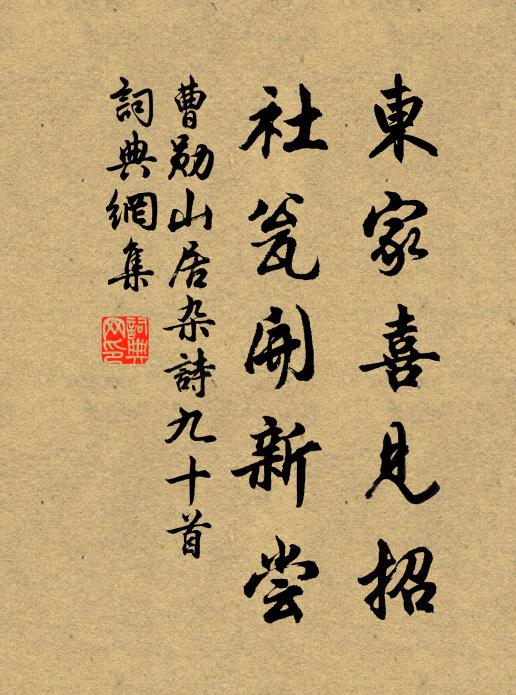 東家喜見招
社瓮開新尝
曹勛山居杂詩九十首
詞典網集
詞典網印